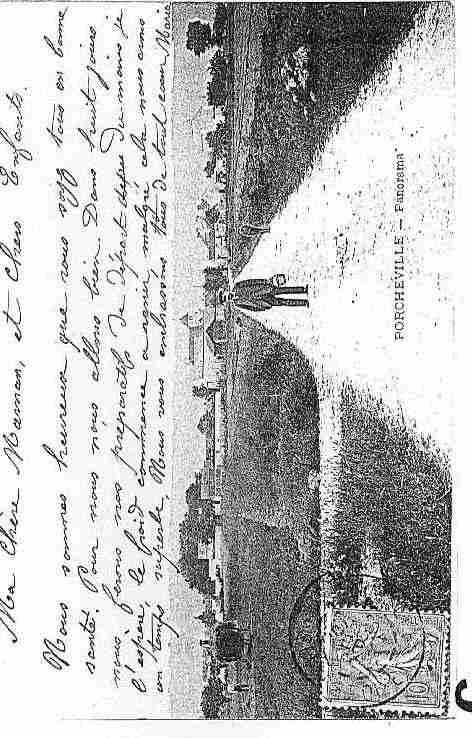 Ma Chère Maman, et Chers Enfants.
Nous sommes heureux que vous soyez tous en bonne
santé. Pour nous nous allons bien Dans huit jours
nous ferons nos préparatifs de départ depuis du moins je
l'espère, le froid commence a venir, malgré cela nous avons
un temps superbe, Nous vous embrassons tous de tout cœur Marie
PORCHEVILLE — Panorama
10